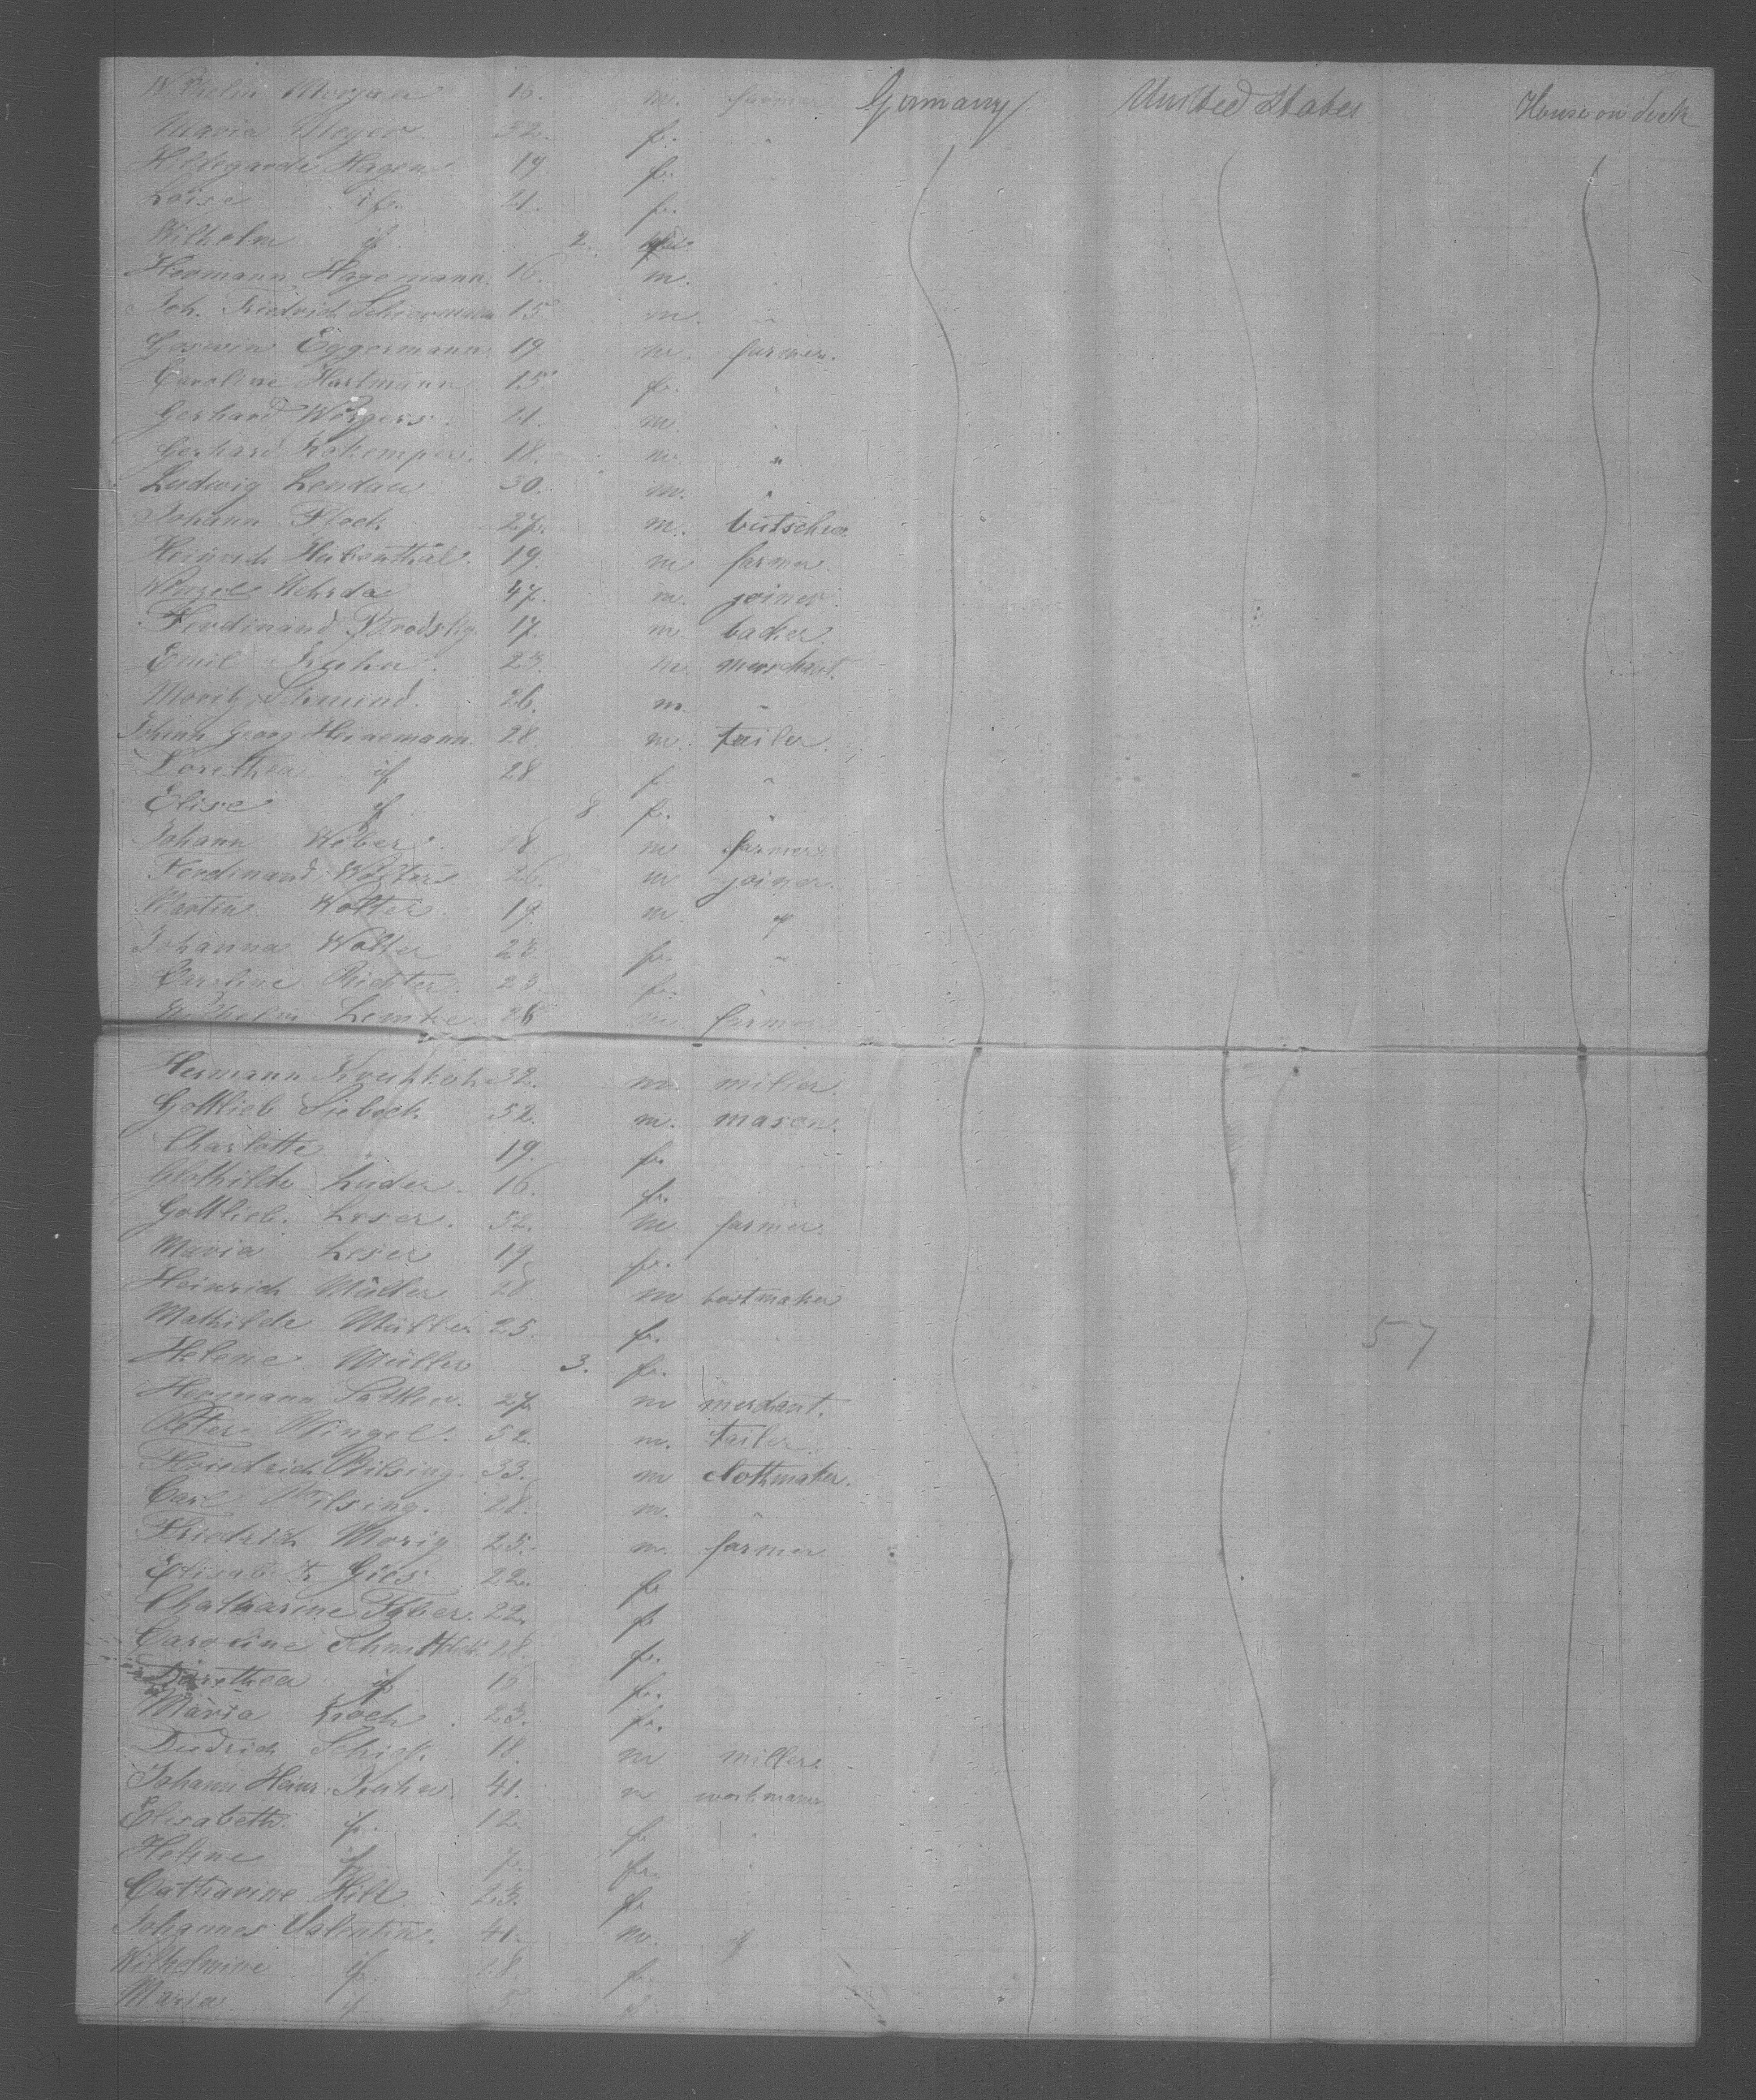 Wilhelm Morjan 16. m. farmer Germany United States House on deck
Maria Meyer 32. f. "
Hildegarde Hagen 19 f.
Loise if. 21. f.
Wilhelm if 2.
Hermann Hagemann 16. m.
Joh. Friedrich 15. m. "
Goswin Eggermann 19 m. farmer.
Caroline Hartmann 15. f. "
Gerhard 21. m. "
Gerhard 18. m. "
Ludwig Lendau 30. m. "
Johann 27. m. butscher
Heinrich Hubenthal. 19. m farmer.
47. m. joiner.
Ferdinand Brodsky. 17. m. backer.
Emil Kuhn. 23. m merschant.
Moritz 26. m "
Johann Georg Heinemann. 28. m. tailer.
Dorethea if 28 f "
Elise if 8 f. "
Johann Weber. 18 m farmer.
Ferdinand Wolter 26. m joiner.
Martin Wolter. 19. m. if
Johanna Wolter 23. f. "
Caroline Richter. 23. f.
Wilhelm Lemke. 26 m. farmer
Hermann 32. m. miller.
Gottlieb Siebeck 52. m. mason.
Charlotte " 19. f.
Luder. 16. f.
Gottlieb. Leser. 52. m farmer.
Maria Leser 19 f.
Heinrich Müller 28. m bootmaker
Mathilde Müller 25. f. 57
Helene Müller 3. f.
Hermann Sattler. 27. m merchant.
Peter Wingel. 52. m. tailer.
Friedrich Wilsing. 33. m clothmaker.
Carl Wilsing. 28. m. "
Friedrich Morig 25. m. farmer
Elisabeth Gies 22. f
Chatharine Faber. 22. f
Caroline 28. f.
Dorethea if 16 f.
Maria Koch. 23. f.
Diedrich Schick 18. m miller
Johann Heinr. Kuhn. 41. m workmann
Elisabeth if. 12. f
Helene if 7. f.
Catharine Hill 23. f
Johannes Valentin. 41. m. if
Wilhelmine if. 28. f.
Maria if 5 f